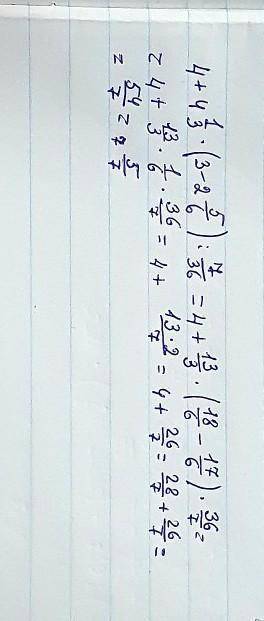 4 + 4 1/3 · (3 - 2 5/6) : 7/36 = 4 + 13/3 · (18/6 - 17/6) · 36/7 =
= 4 + 13/3 · 1/6 · 36/7 = 4 + 13·2/7 = 4 + 26/7 = 28/7 + 26/7 =
= 54/7 = 7 5/7